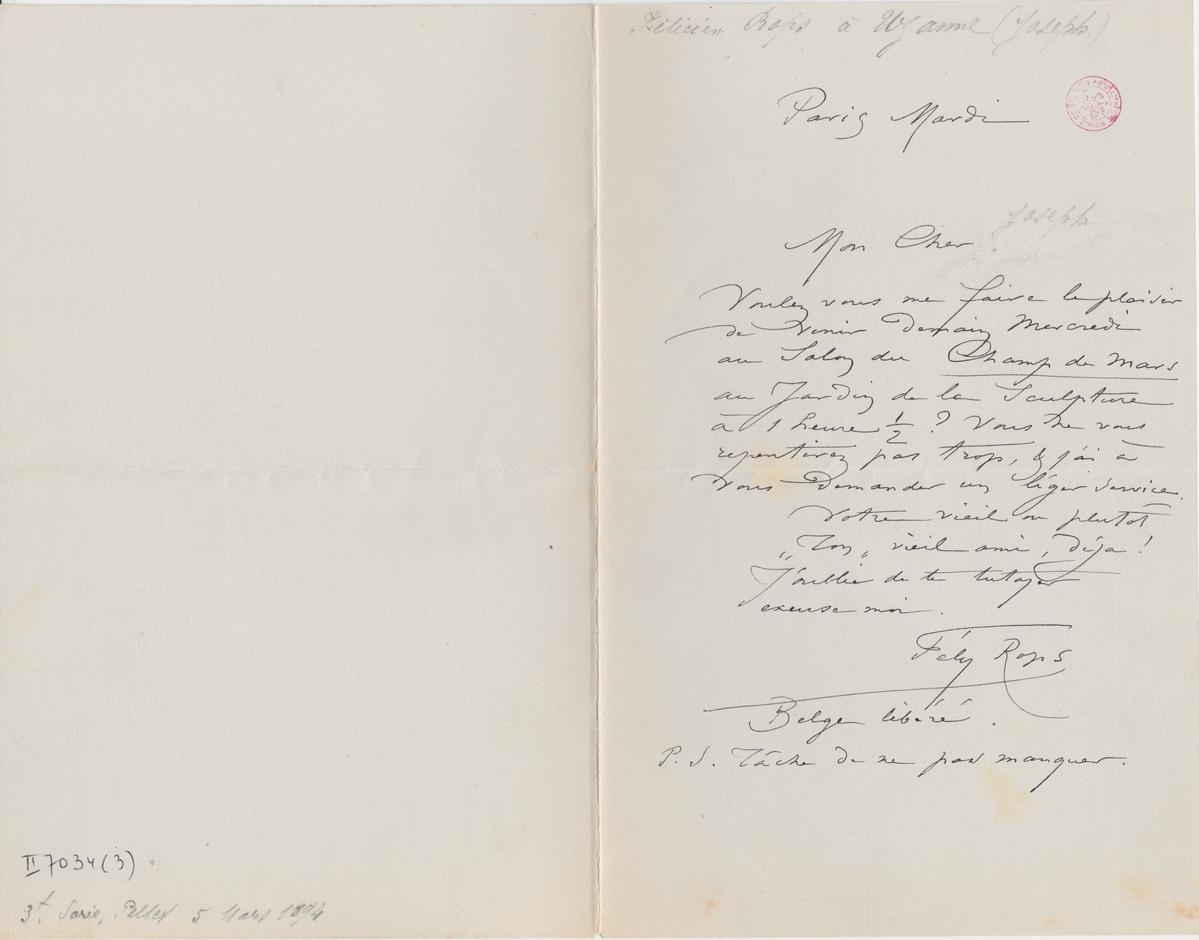 Félicien Rops à Uzanne (Joseph.)
Paris Mardi
Joseph
Mon Cher
Voulez vous me faire le plaisir
de venir demain Mercredi
au Salon du Champ de Mars
au Jardin de la Sculpture
à 1 heure ½ ? Vous ne vous
repentirez pas trop, & j'ai à
vous demander un léger service.
Votre vieil ou plutôt
„Ton„ vieil ami, déja !
J'oublie de te tutoyer
excuse moi.
Fély Rops
Belge libéré.
P. S. Tâche de ne pas manquer.
II 7034(3)
3t. Pellet 5 Mars 1894